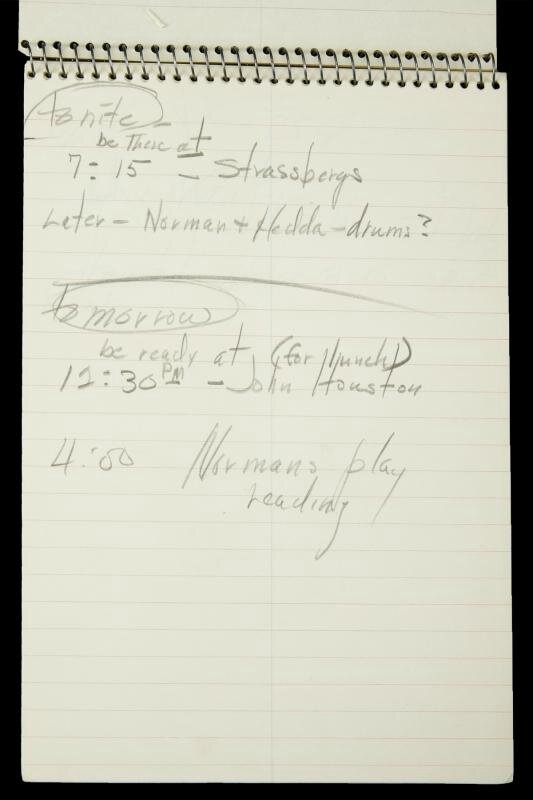 tonite -
be there at
7:15 - Strassbergs
Later - Norman + Hedda - drums?
tomorrow
be ready at (for lunch)
12:30 PM - John Houston
4:00 Normans play
reading